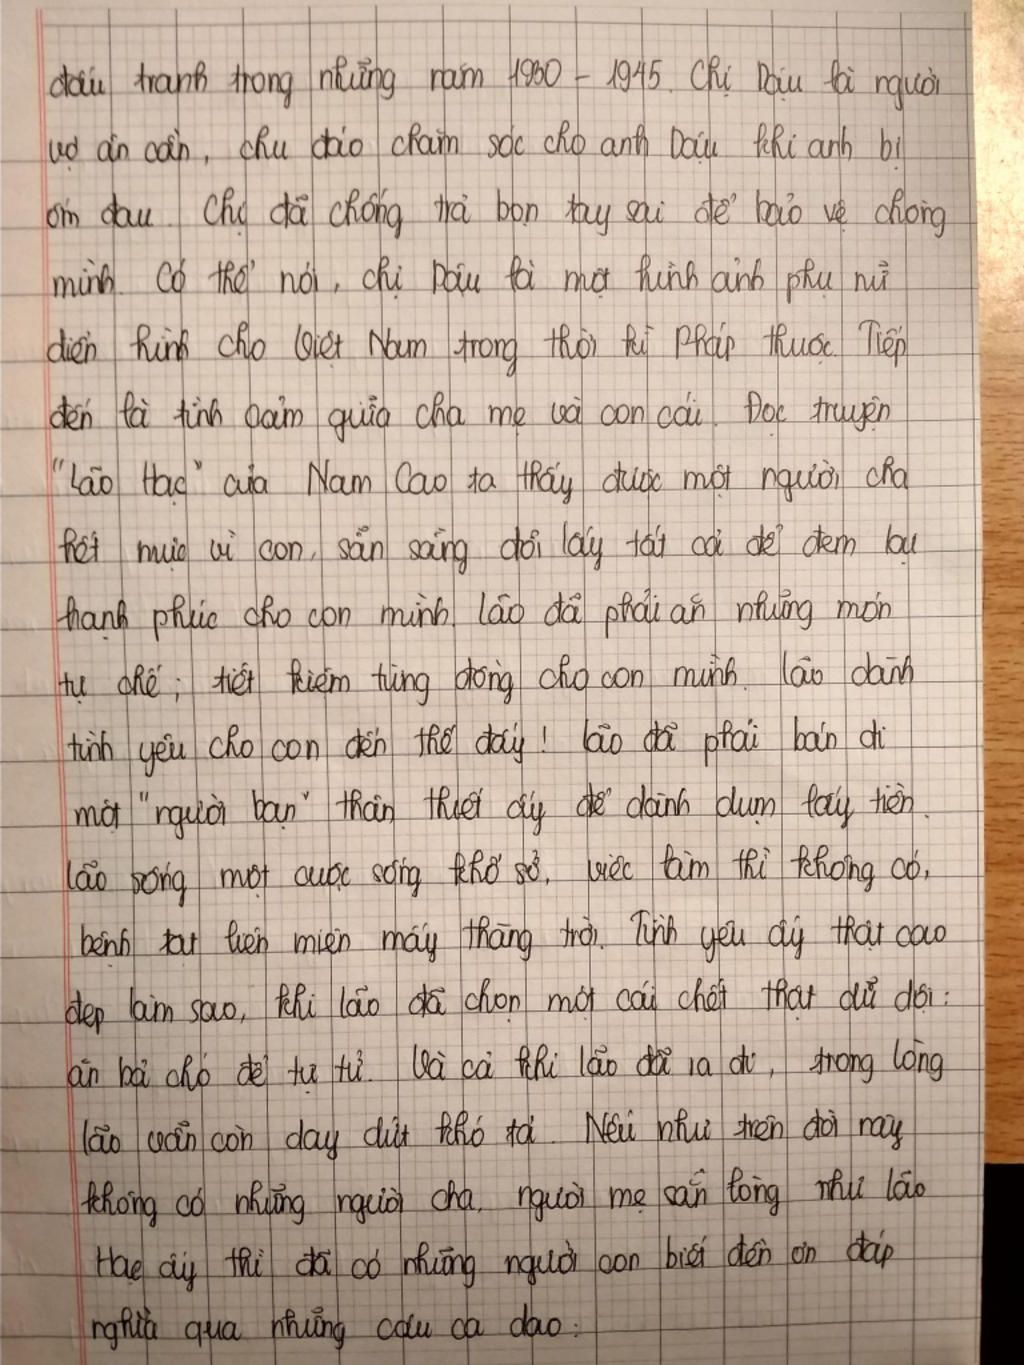 đấu tranh trong những năm 1930 - 1945. Chị Dậu là người
vợ ân cần, chu đáo chăm sóc cho anh Dậu khi anh bị
ốm đau. Chị đã chống trả bọn tay sai để bảo vệ chồng
mình. Có thể nói, chị Dậu là một hình ảnh phụ nữ
điển hình cho Việt Nam trong thời kì Pháp thuộc. Tiếp
đến là tình cảm giữa cha mẹ và con cái. Đọc truyện
"Lão Hạc" của Nam Cao ta thấy được một người cha
hết mực vì con, sẵn sàng đổi lấy tất cả để đem lại
hạnh phúc cho con mình. Lão đã phải ăn những món
tự chế; tiết kiệm từng đồng cho con mình. Lão dành
tình yêu cho con đến thế đấy! Lão đã phải bán đi
một "người bạn" thân thiết ấy để dành dụm lấy tiền.
Lão sống một cuộc sống khổ sở, việc làm thì không có,
bệnh tật liên miên mấy tháng trời. Tình yêu ấy thật cao
đẹp làm sao, khi lão đã chọn một cái chết thật dữ dội:
ăn bả chó để tự tử. Và cả khi lão đã ra đi, trong lòng
lão vẫn còn day dứt khó tả. Nếu như trên đời này
không có những người cha, người mẹ sẵn lòng như lão
Hạc ấy thì đã có những người con biết đền ơn đáp
nghĩa qua những câu ca dao: